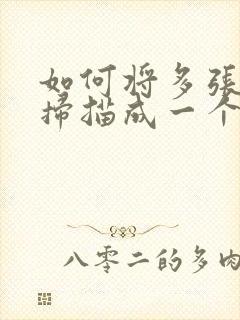 如何将多張
掃描成一个
八零二的多肉